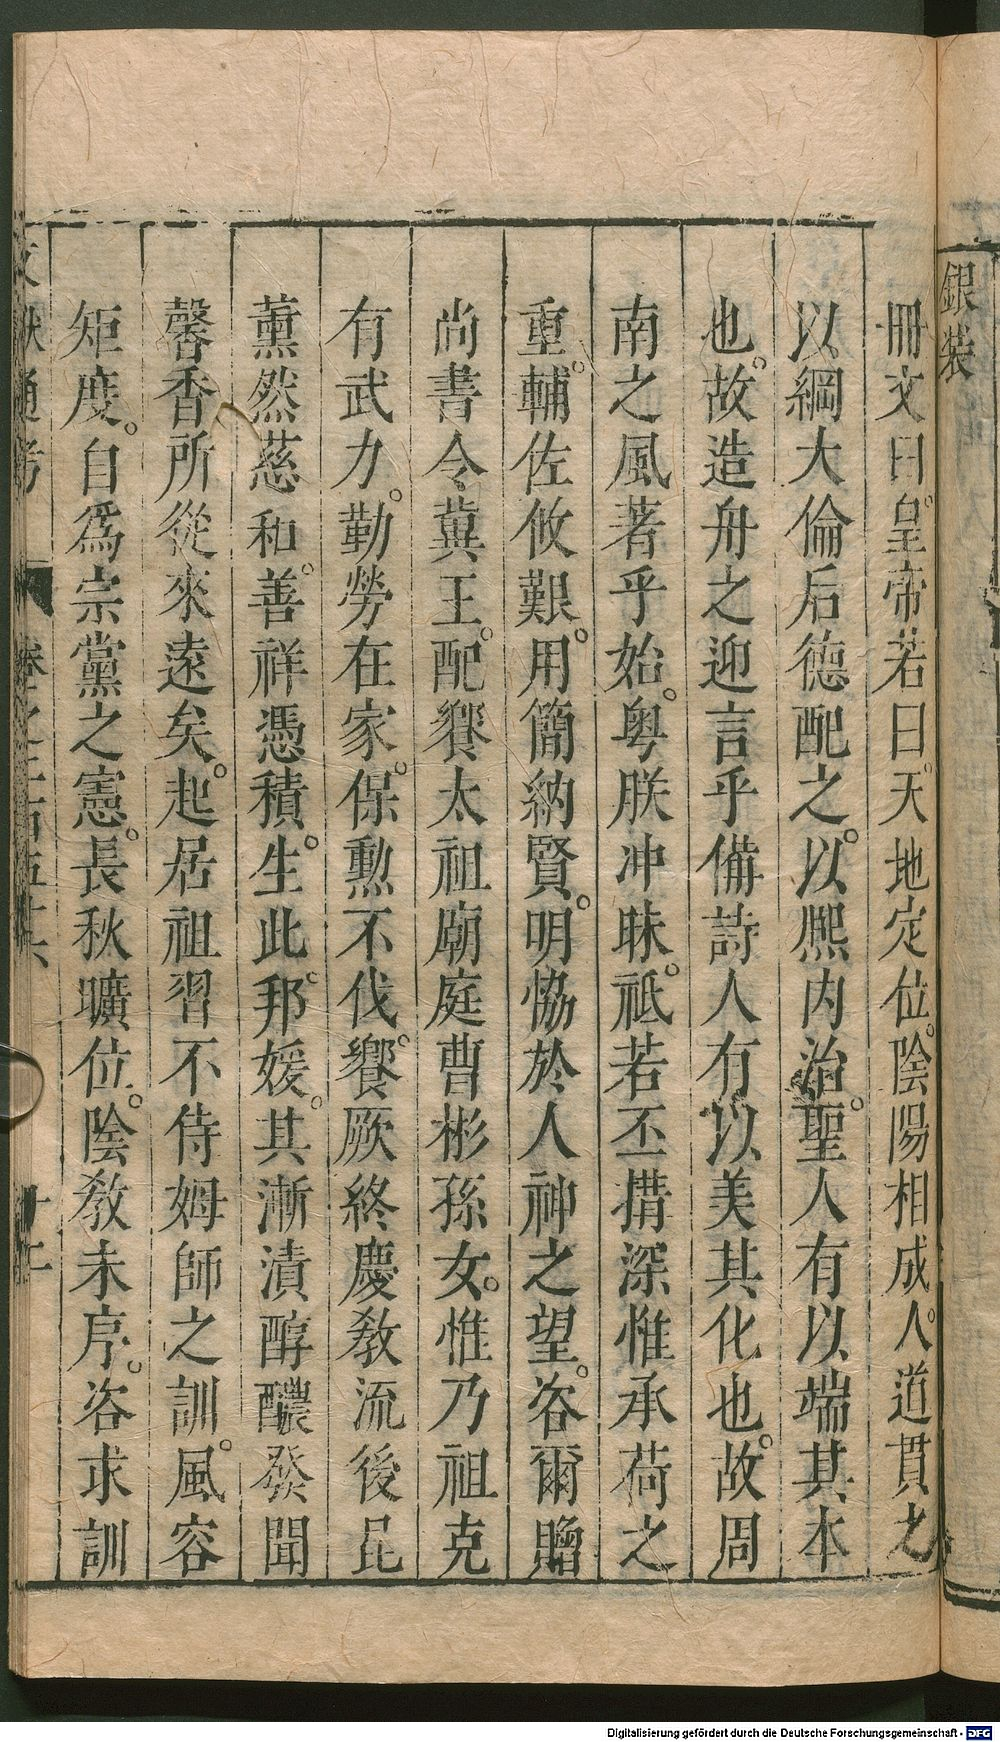 銀裝
冊文曰皇帝若曰天地定位。陰陽相成。人道貫之
以綱大倫后德配之。以熙内治。聖人有以端其本
也。故造舟之迎言乎備詩人有以美其化也。故周
南之風著乎始。粵朕沖昧。祗若丕搆深惟承荷之
重。輔佐攸艱。用簡納賢。明恊於人神之望。咨爾贈
尚書令冀王。配饗太祖廟庭曹彬孫女。惟乃祖克
有武力。勤勞在家。保勲不伐。饗厥終慶教流後昆
薰然慈和。善祥憑積。生此邦媛。其漸漬醇醲發聞
馨香所從來遠矣。起居祖習不侍姆師之訓。風容
矩度。自爲宗黨之憲。長秋曠位。陰教未序。咨求訓
文獻通考
Digitalisierung gefördert durch die Deutsche Forschungsgemeinschaft - DFG